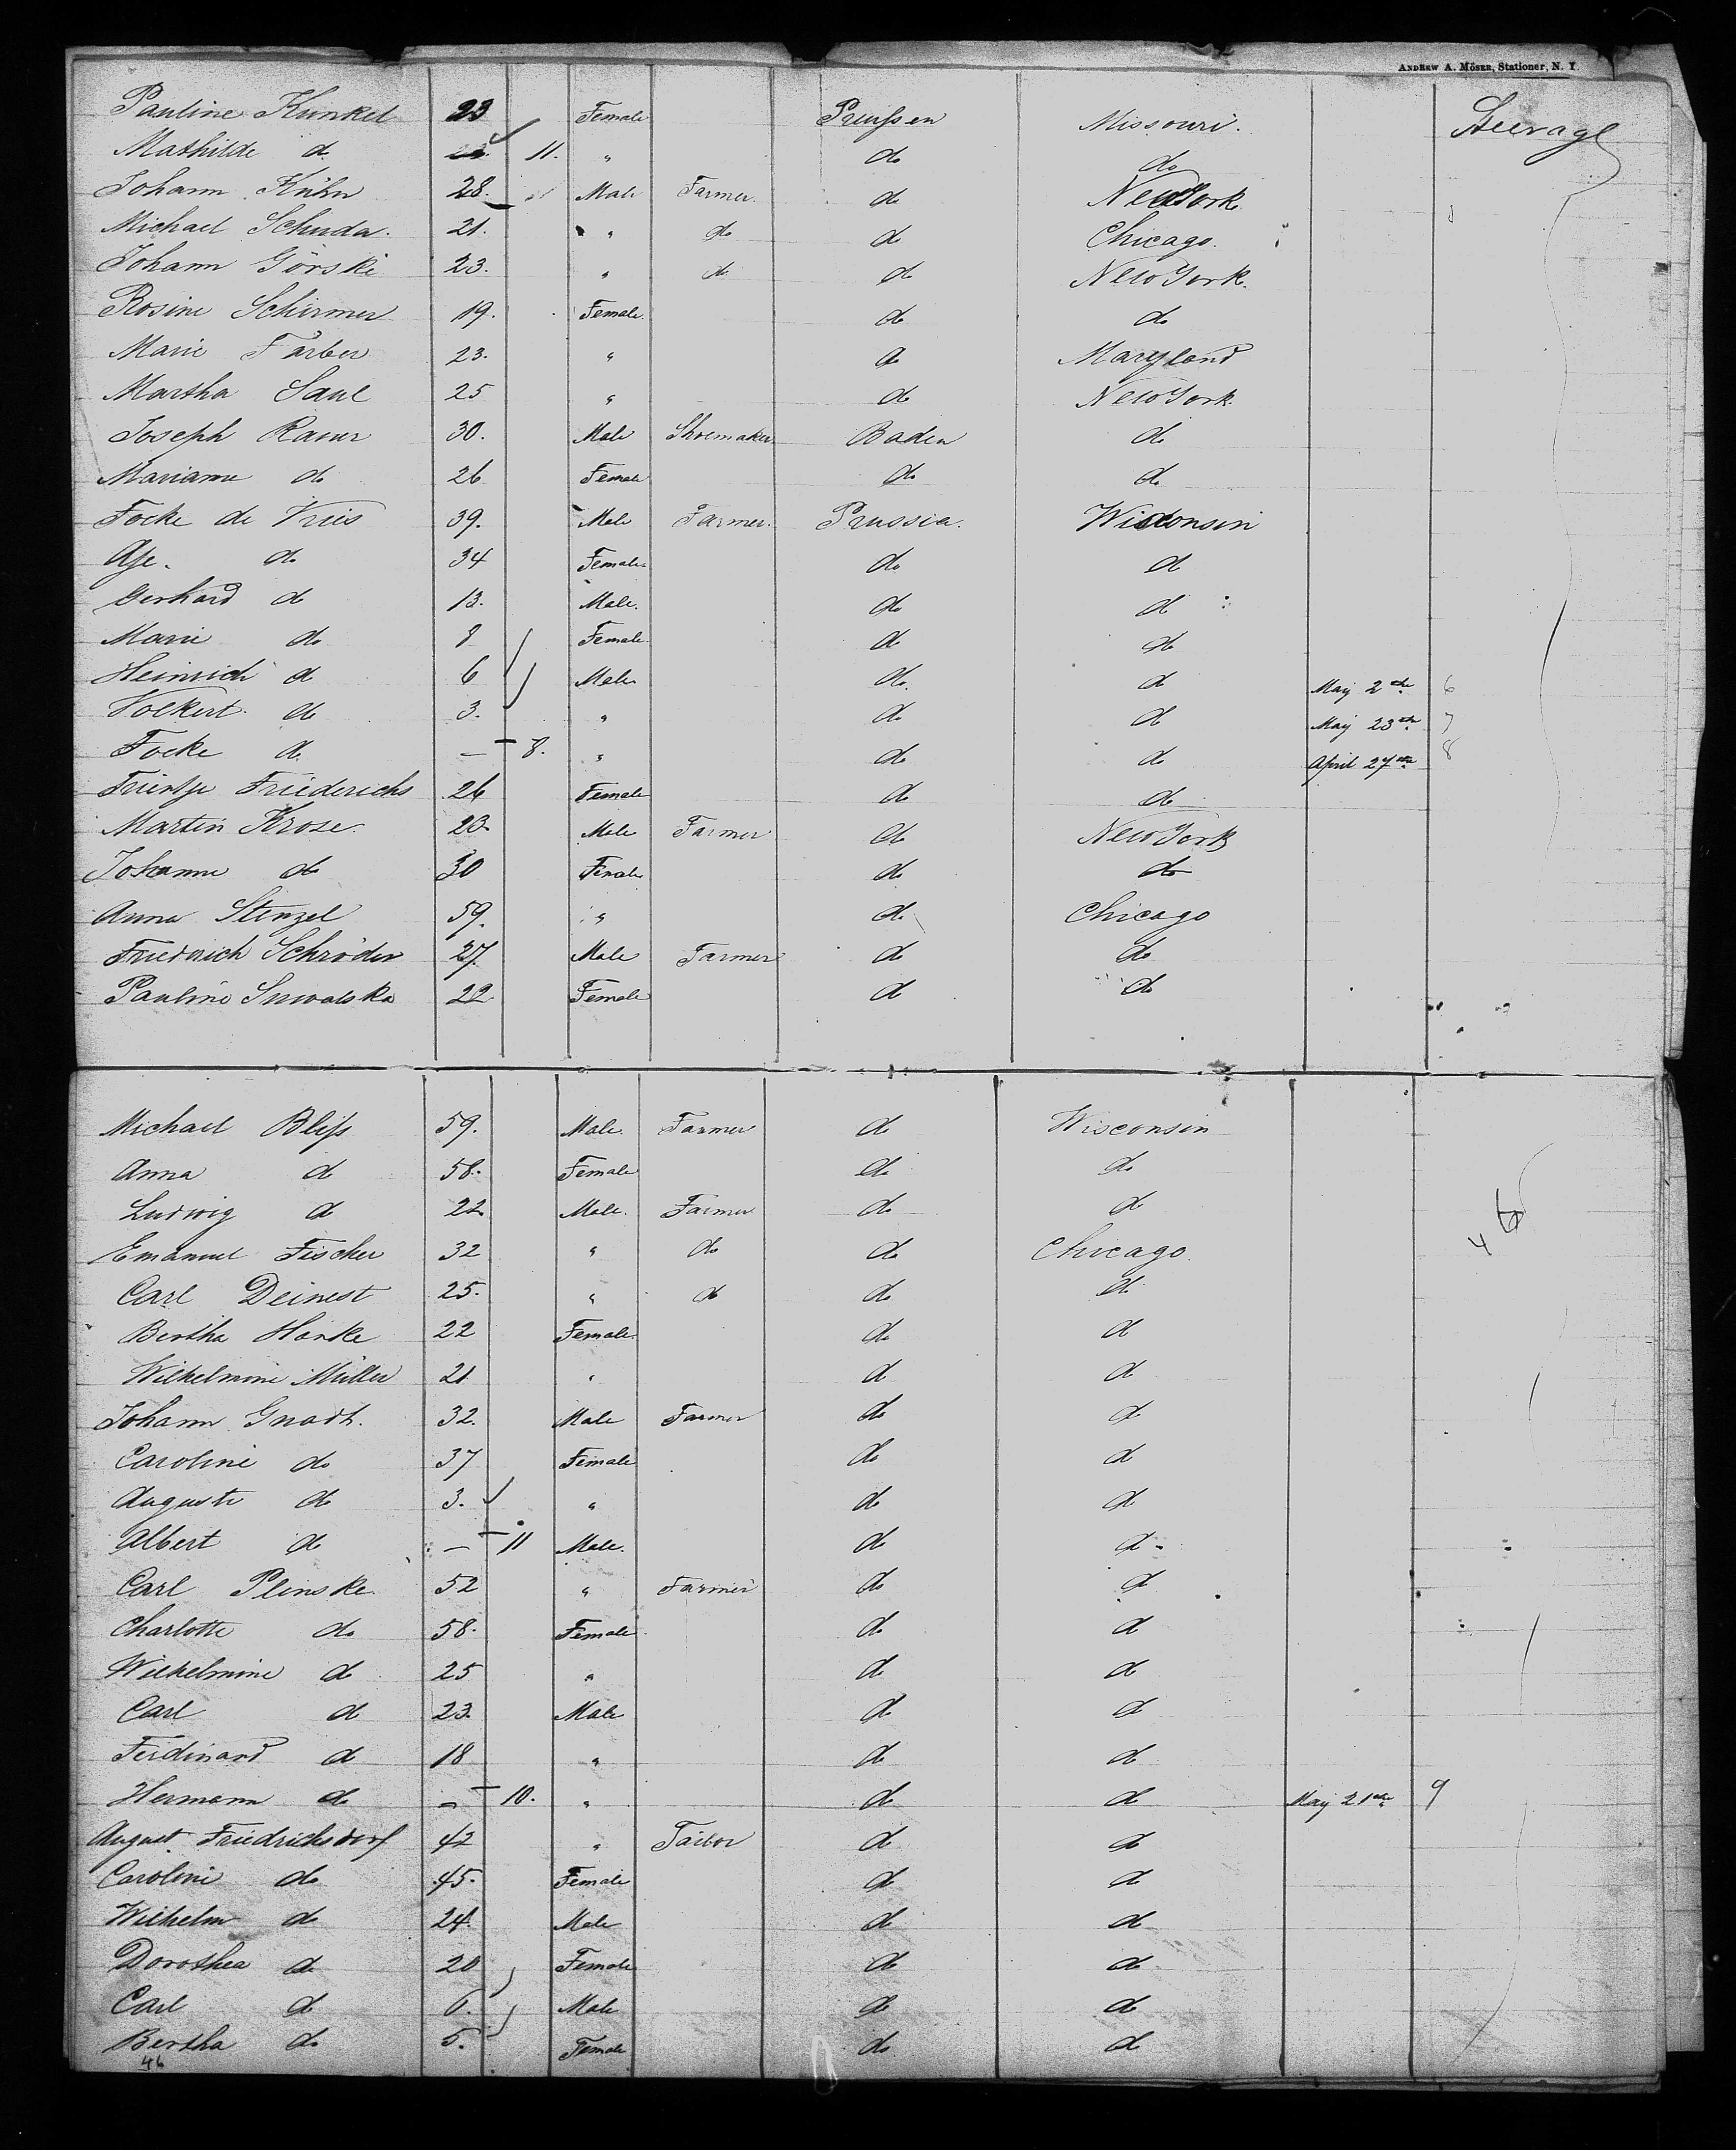 ANDREW A. MÖSER, Stationer, N. Y.
Pauline Kunkel 23 Female Preussen Missouri. Steerage
Mathilde do 11. " do do
Johann Kühn 28. Male Farmer. do New York.
Michael Schuda. 21. " do do Chicago.
Johann Görski 23. " do do New York.
Rosine Schirmer 19. Female do do
Marie Färber 23. " do Maryland
Martha Saul 25 " do New York.
Joseph Rauer 30. Male Shoemaker Baden do
Marianne do 26 Female do do
Focke de Vries 39. Male Farmer. Prussia. Wisconsin
do 34 Female do do
Gerhard do 13. Male. do do
Marie do 8 Female do do
Heinrich do 6 Male do. do May 2th 6
Volkert. do 3. " do do May 23th 7
Focke do — 8. " do do April 27th 8
Trientje Friederichs 26 Female do do
Martin Krose. 20. Male Farmer do New York
Johanne do 30 Female do do
Anna Stenzel 59. " do Chicago
Friedrich Schröder 27. Male Farmer do do
Pauline Suwalska 22 Female do do
Michael Bliss 59. Male. Farmer do Wisconsin
Anna do 58. Female do do
Ludwig do 22 Male. Farmer do do
Emanuel Fischer 32 " do do Chicago.
Carl Deinest 25. " do do do
Bertha Hanke 22 Female. do do
Wilhelmine Müller 21 " do do
Johann Gnadt. 32. Male Farmer do do
Caroline do 37 Female do do
Auguste do 3. " do do
Albert do — 11 Male. do do
Carl Plinske 52 " Farmer do do
Charlotte do 58. Female do do
Wilhelmine do 25 " do do
Carl do 23. Male do do
Ferdinand do 18 " do do
Hermann do — 10. " do do May 21th 9
August Friedrichsdorf 42 " Tailor do do
Caroline do 45. Female do do
Wilhelm do 24. Male do do
Dorothea do 20 Female do do
Carl do 6. Male do do
Bertha do 5. Female do do
46